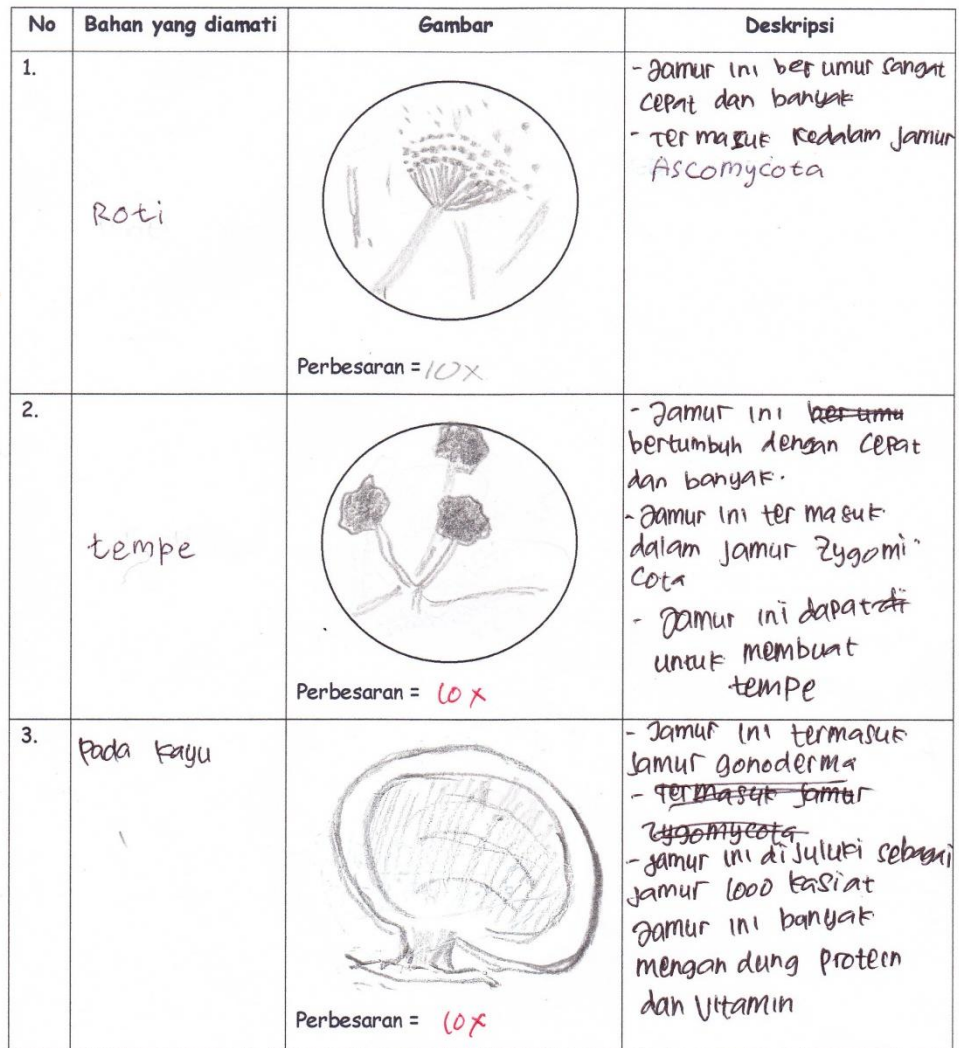 No Bahan yang diamati Gambar Deskripsi
1.
Roti
Perbesaran = 10x
- Jamur ini ber umur sangat
cepat dan banyak
- Termasuk kedalam jamur
Ascomycota
2.
tempe
Perbesaran = 10x
- Jamur ini ber umu
bertumbuh dengan cepat
dan banyak.
- Jamur ini ter masuk
dalam jamur Zygomi
cota
- Jamur ini dapat di
untuk membuat
tempe
3.
Pada kayu
Perbesaran = 10x
- Jamur ini termasuk
jamur gonoderma
- termasuk jamur
zygomycota
- jamur ini di juluki sebagai
jamur 1000 kasiat
Jamur ini banyak
mengan dung protein
dan vitamin